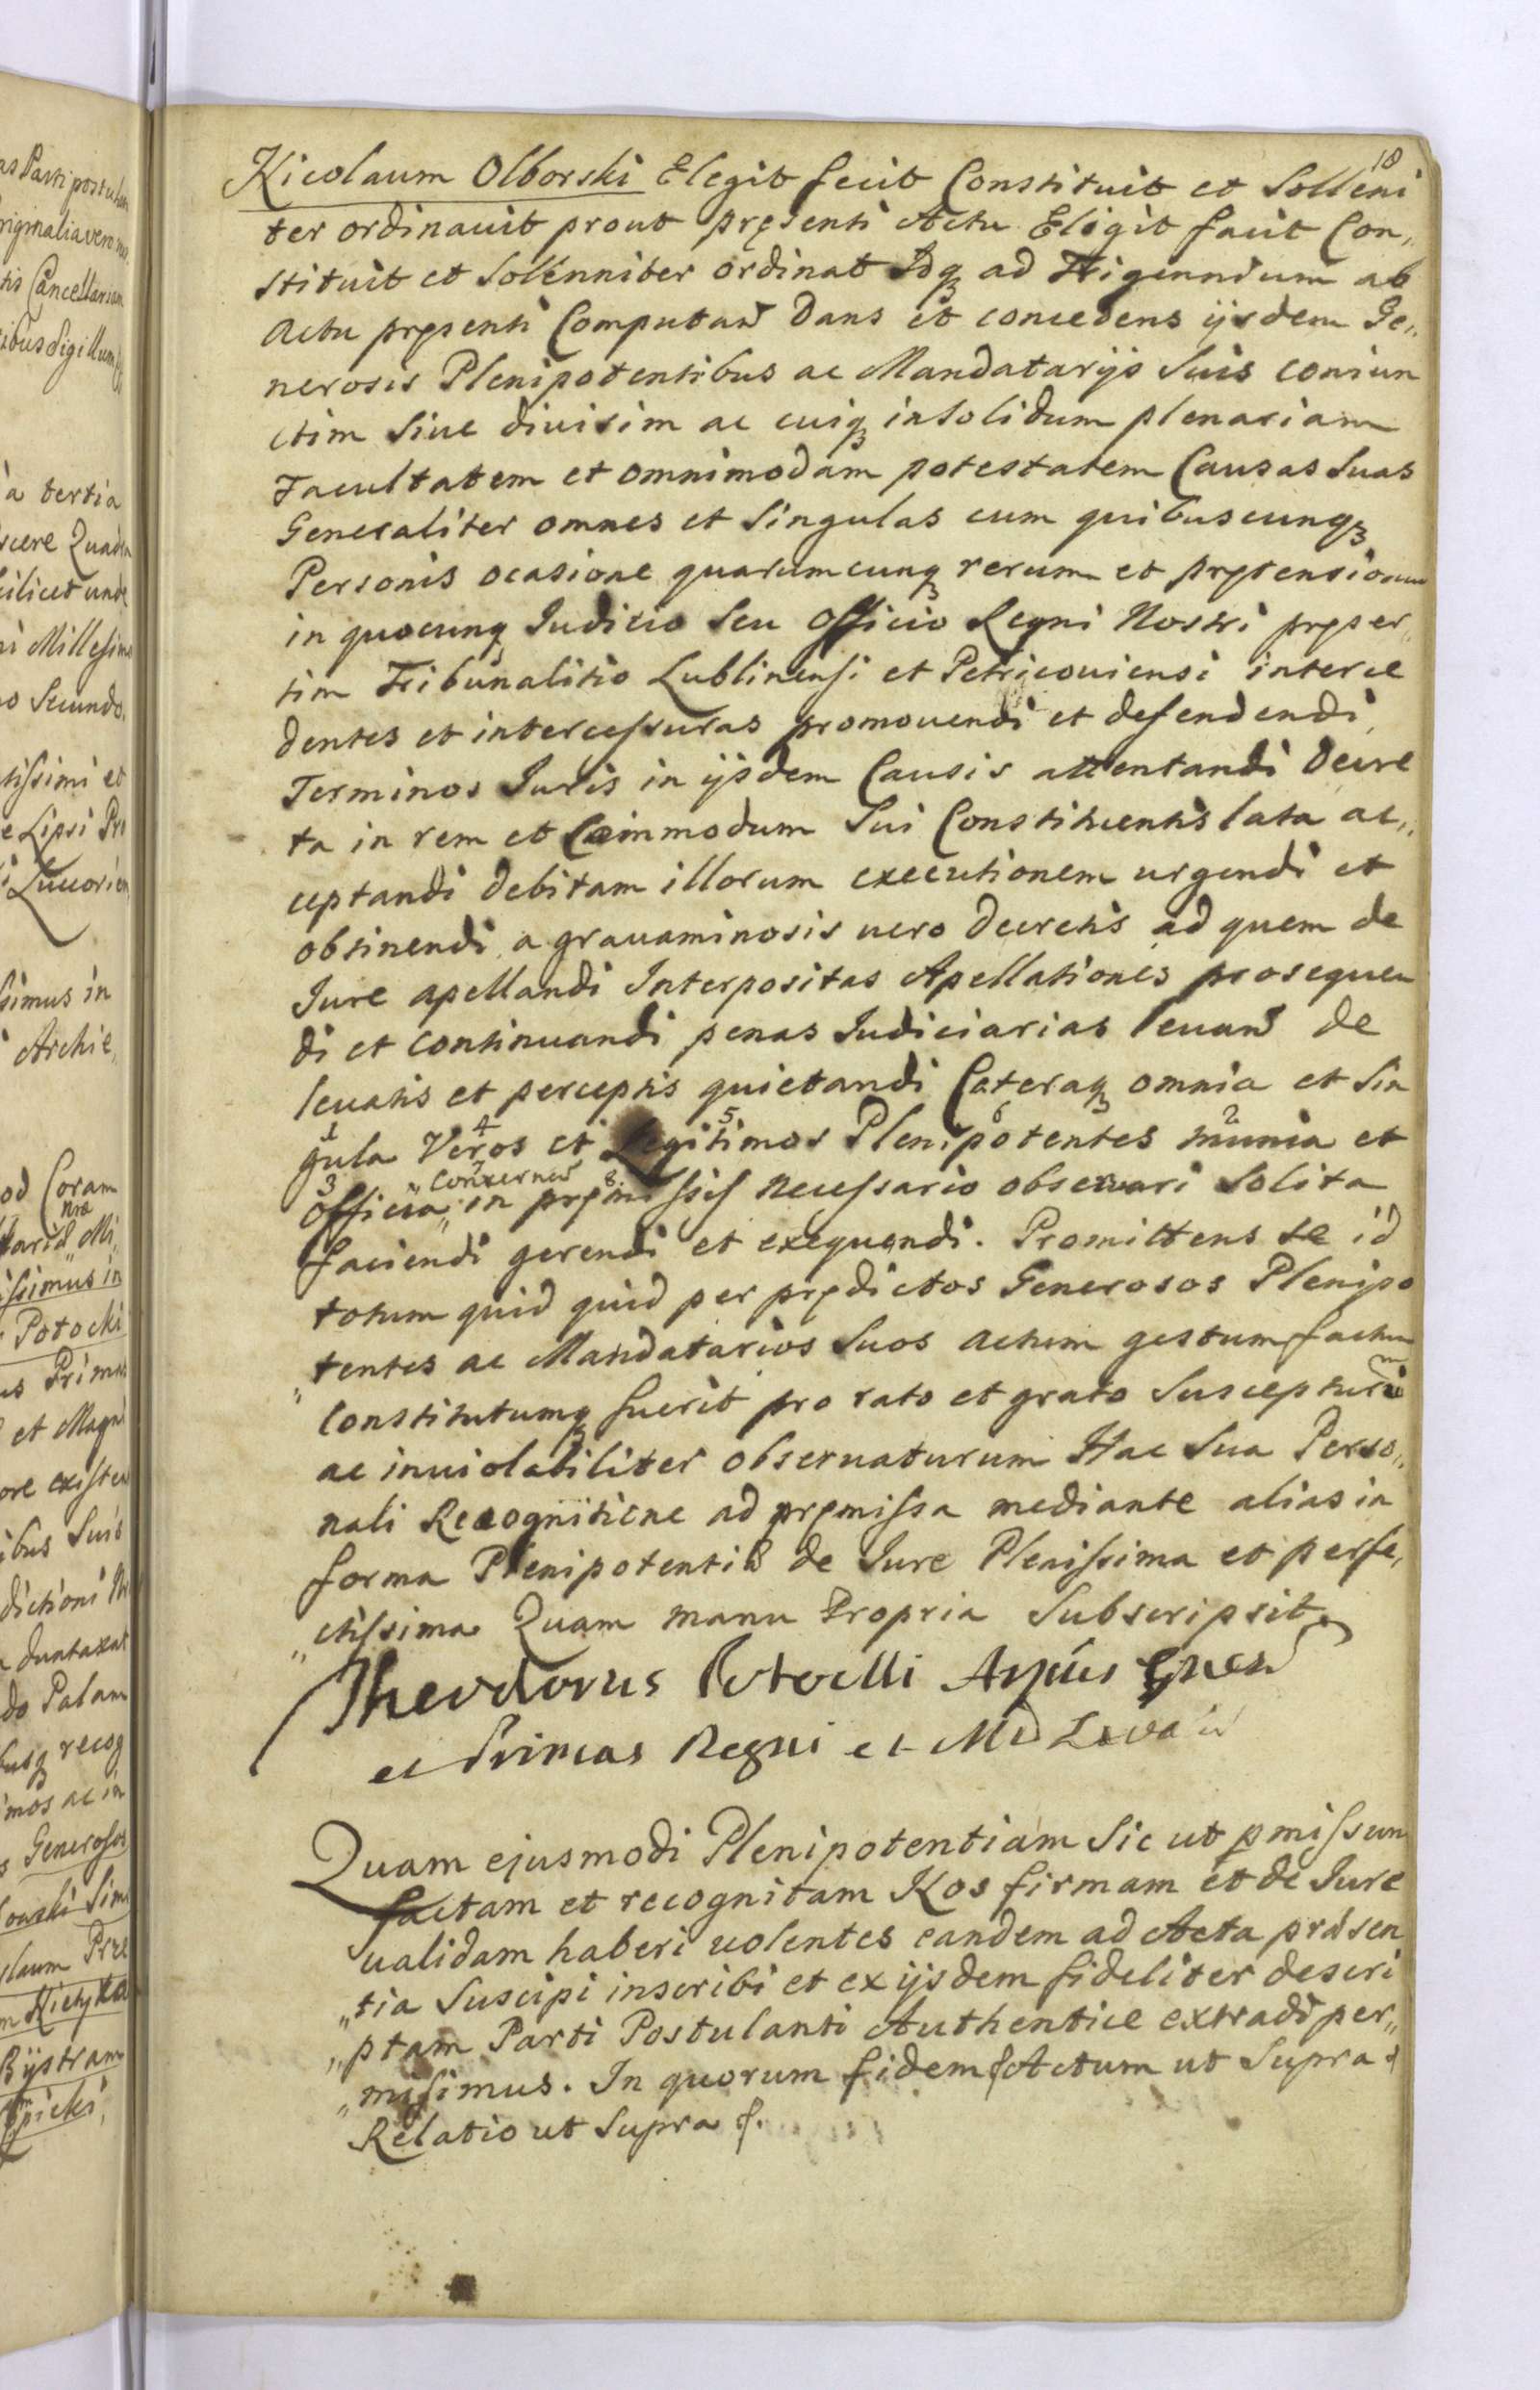 18
Nicolaum Olborski Elegit fecit Constituit et Solleni
ter ordinauit prout pręsenti Actu Eligit facit Con„
stituit et Solenniter ordinat Idq ad Trigennium ab
Actu pręsenti Computan Dans et concedens ijsdem Ge„
nerosis Plenipotentibus ac Mandatarijs Suis coniun
ctim Siue diuisim ac cuiq insolidum plenariam
Facultatem et omnimodam potestatem Causas Suas
Generaliter omnes et Singulas cum quibuscunq
Personis ocasione quarumcunq rerum et prętensionum
in quocunq Juditio Seu Officio Regni Nostri pręser„
tim Tribunalitio Lublinensi et Petricouiensi interce
dentes et intercessuras promouendi et defendendi
Terminos Juris in ijsdem Causis attentandi Decre
ta in rem et Commodum Sui Constituentis lata ac„
ceptandi debitam illorum executionem urgendi et
obtinendi a grauaminosis uero Decretis ad quem de
Jure apellandi Interpositas Apellationes prosequen
di et continuandi penas Judiciarias leuan de
leuatis et perceptis quietandi Cateraq omnia et Sin
1 4 5 6 2
gula Veros et Legitimos Plenipotentes munia et
3 „ 7 Concernen 8
Officia „ in pręmissis necessario obseruari Solita
faciendi gerendi et exequendi. Promittens se id
totum quid quid per prędictos Generosos Plenipo
tentes ac Mandatarios Suos actum gestum factum
„ Constitutumq fuerit pro rato et grato Suscepturum
ac inuiolabiliter obseruaturum Hac Sua Perso„
nali Recognitione ad pręmissa mediante alias in
forma Plenipotentiæ de Jure Plenissima et perfe„
„ctissima Quam manu Propria Subscripsit
Theodorus Potocki Arppús Gnen
et Primas Regni et M D
Quam ejusmodi Plenipotentiam Sic ut pmissum
factam et recognitam Nos firmam et de Jure
ualidam haberi uolentes eandem ad Acta præsen
„tia Suscipi inscribi et ex ijsdem fideliter descri
„ptam Parti Postulanti Authentice extradi per„
„misimus. In quorum fidem Actum ut Supra
Relatio ut Supra

as Parti postulan
riginalia vero
tis Cancellariam
ribus Sigillum
a tertia
ilicet unde
i Millesimo
o Secundo.
tissimi et
e Lipsi Pro
Luceorien
simus in
Archie„
od Coram
nræ
taria Mi„
issimus in
Potocki
us Primas
et Magni
ore existen
ibus Suis
dictioni
duntaxat
do Palam
usq recog
imos ac in
s Generosos
owski Sim
laum Prze
m
Bÿstram